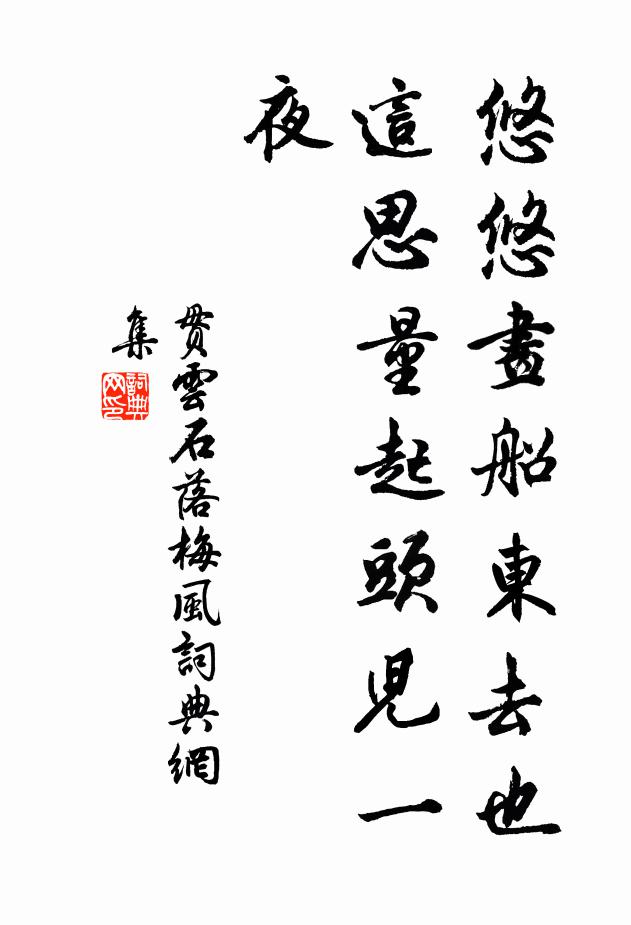 悠悠畫船東去也
這思量起頭兒一
夜
貫雲石落梅風詞典網
集
詞典
网印